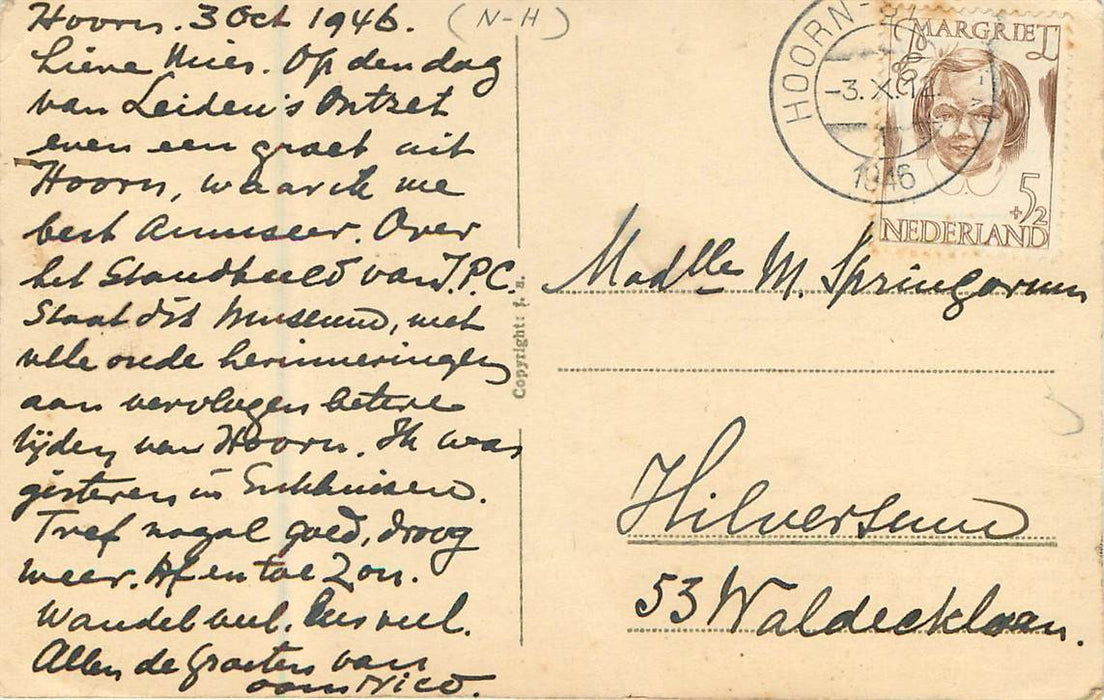 Hoorn. 3 Oct 1946. (N-H)
Lieve Mies. Op den dag
van Leiden's Ontzet
even een groet uit
Hoorn, waar ik me
best amuseer. Over
het Standbeeld van J.P.C.
Staat dit Museum, met
vele oude herinneringen
aan vervlogen betere
tijden van Hoorn. Ik was
gisteren in Enkhuizen.
Tref nogal goed, droog
weer. Af en toe Zon.
Wandel veel. Lees veel.
Allen de groeten van
oom Nico.
Copyright: J. n.
HOORN
-3.X.12
1946
MARGRIET
5
+2
NEDERLAND
Madlle M. Springorum
Hilversum
53 Waldecklaan.